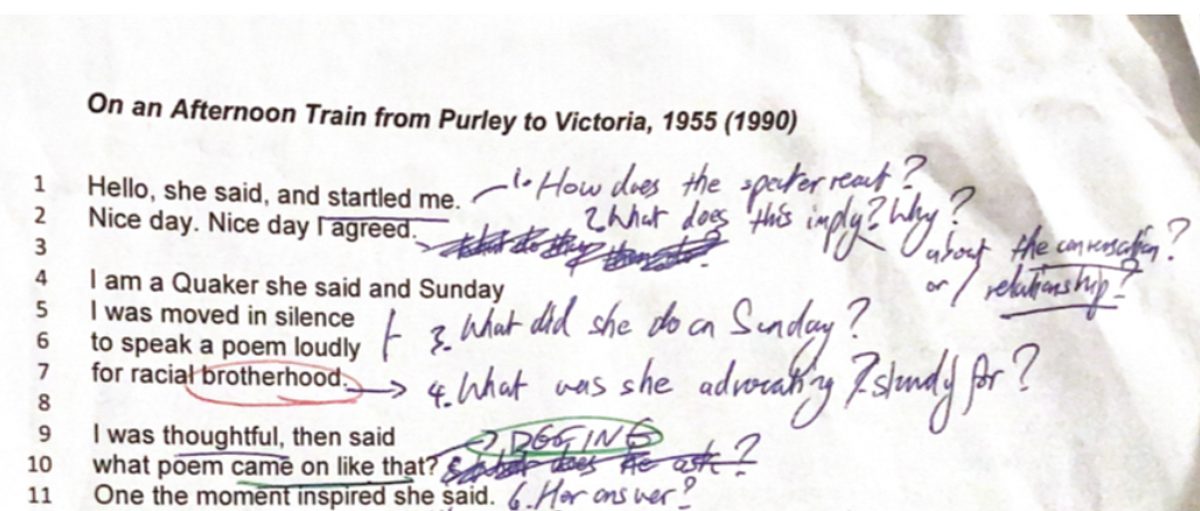 On an Afternoon Train from Purley to Victoria, 1955 (1990)
1 Hello, she said, and startled me. 1. How does the speaker react?
2 Nice day. Nice day I agreed. 2 What does this imply? Why?
3 about the conversation?
or / relationship?
4 I am a Quaker she said and Sunday
5 I was moved in silence
6 to speak a poem loudly 3. What did she do on Sunday?
7 for racial brotherhood. → 4. What was she advocating / standing for?
8
9 I was thoughtful, then said → DEFINE
10 what poem came on like that? does he ask?
11 One the moment inspired she said. 6. Her answer?